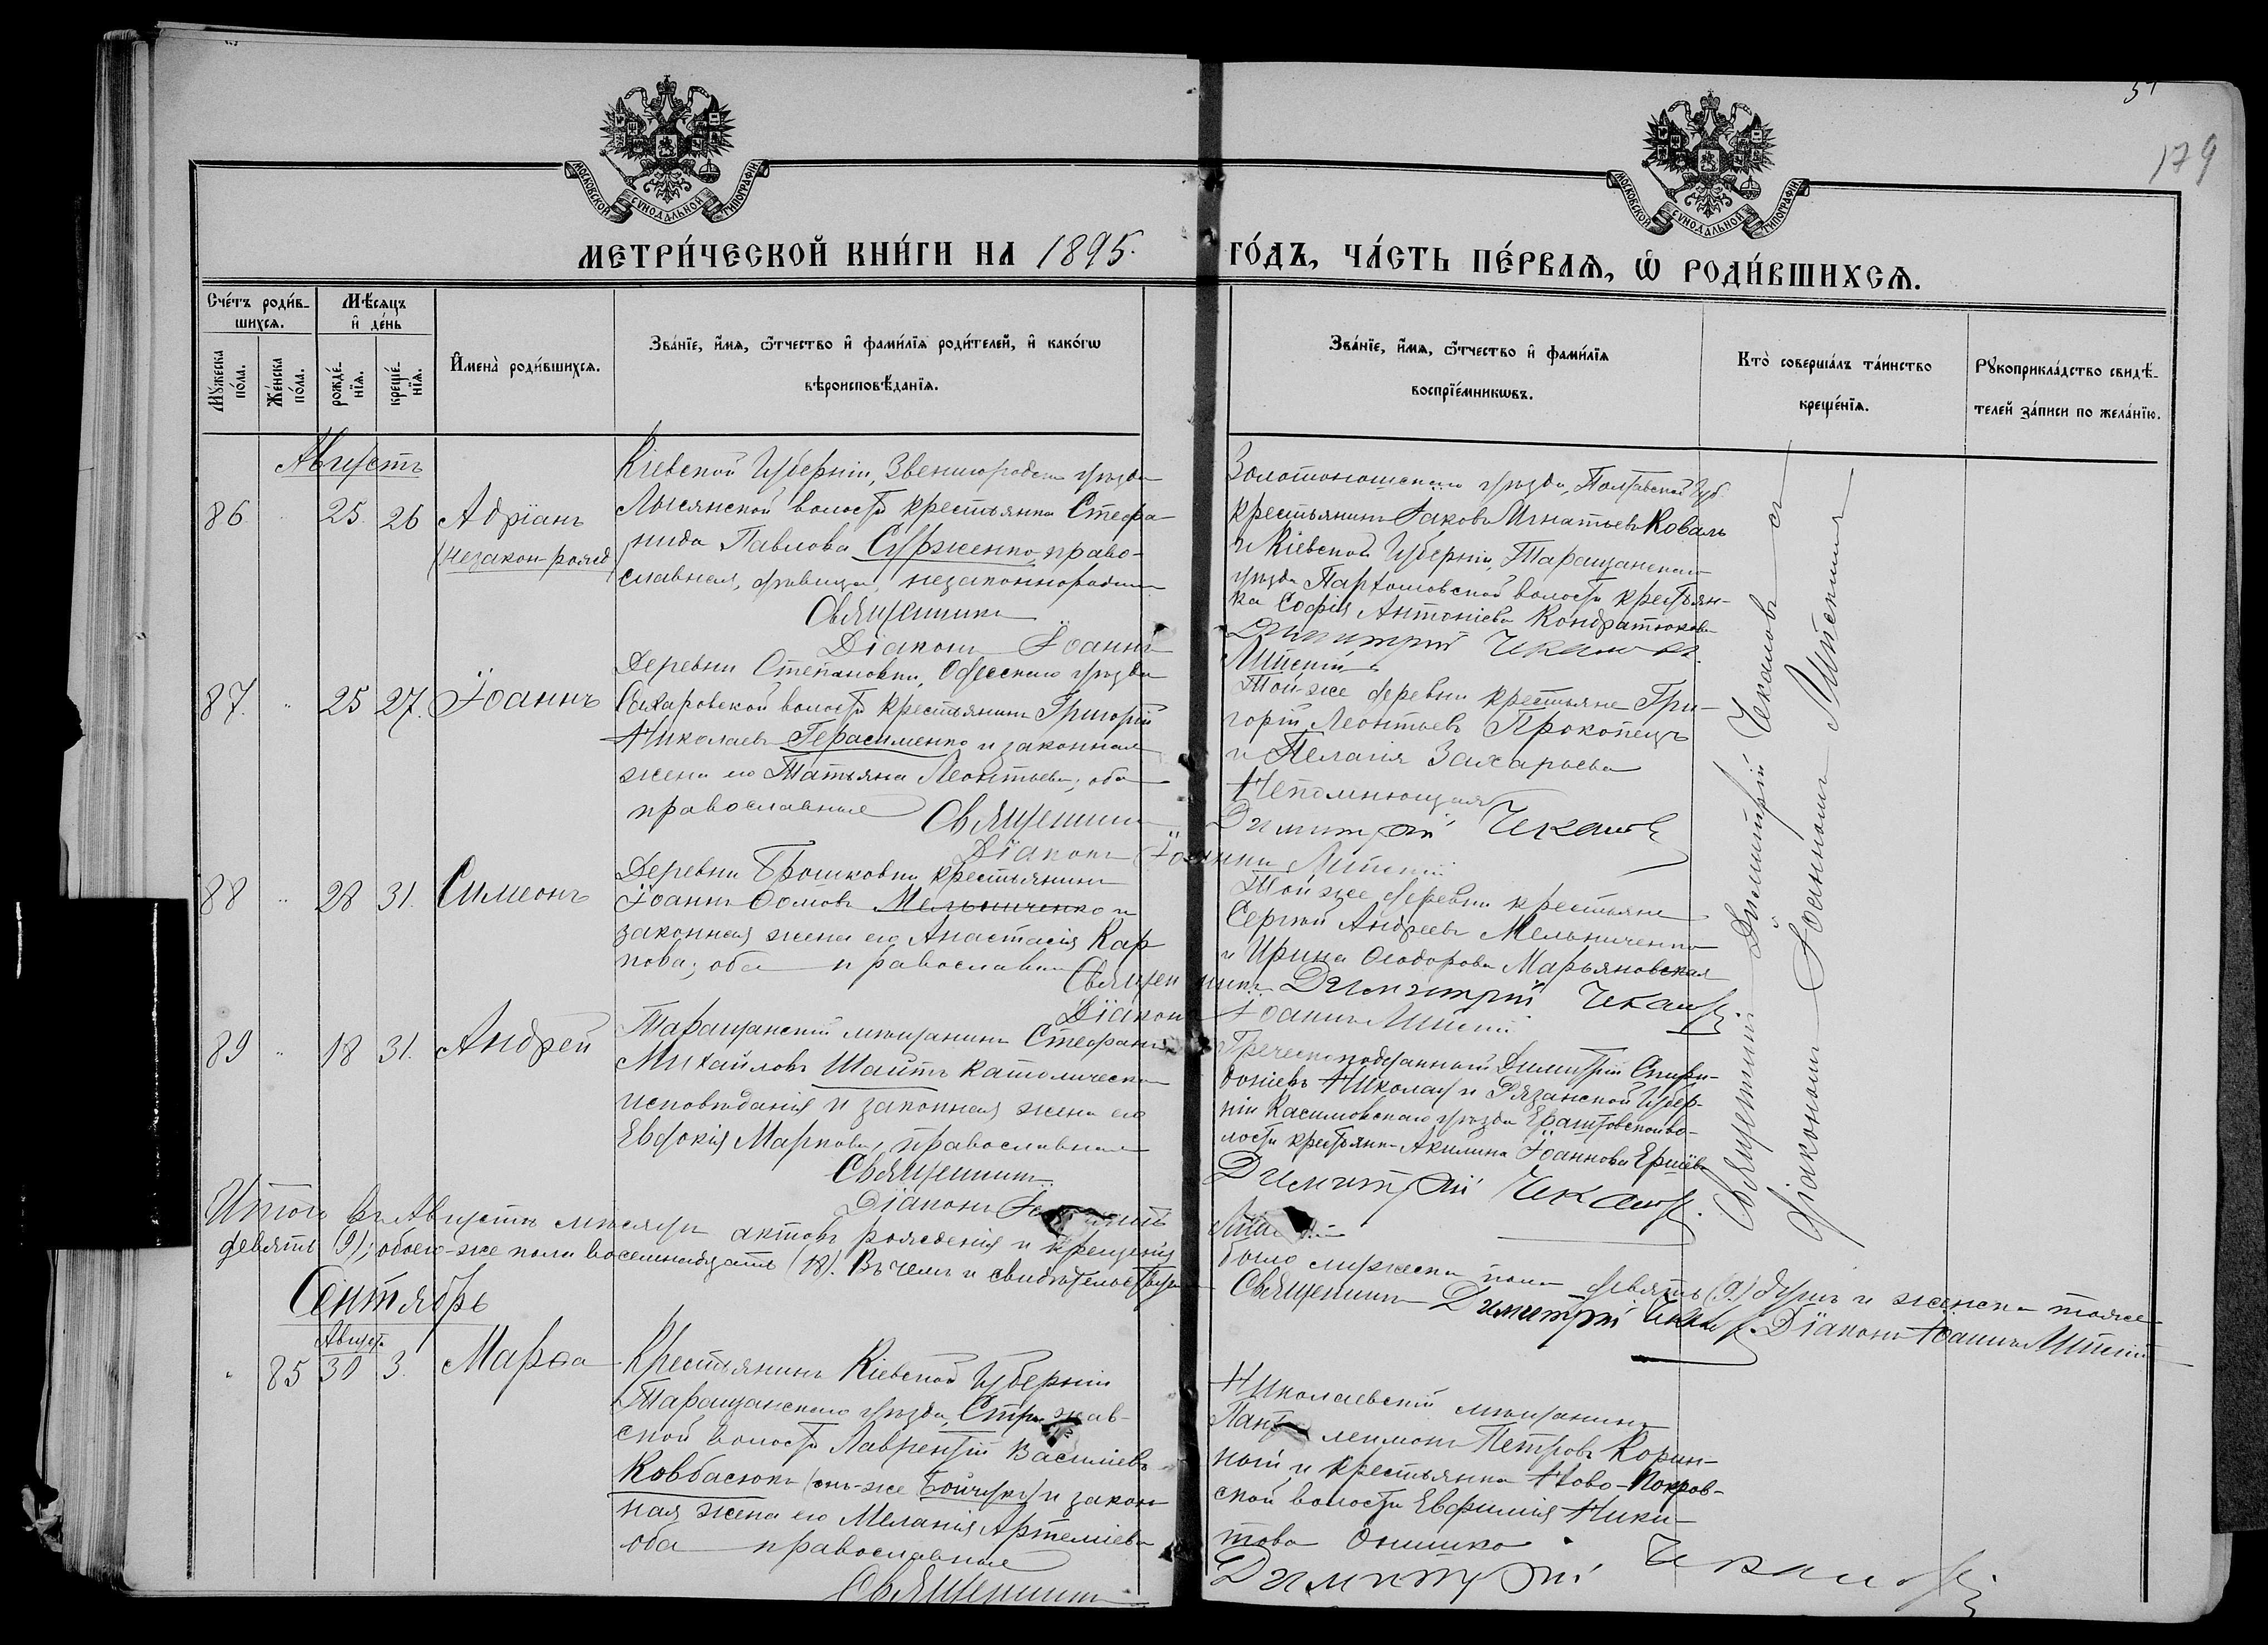 51
179
МОСКОВСКОЙ СѴНОДАЛЬНОЙ ТИПОГРАФІИ
МОСКОВСКОЙ СѴНОДАЛЬНОЙ ТИПОГРАФІИ
МЕТРИ́ЧЕСКОЙ КНИ́ГИ НА 1895. ГО́ДЪ, ЧА́СТЬ ПЕ́РВАѦ, Ѡ҆ РОДИ́ВШИХСѦ.
Сче́тъ роди́в-
шихсѧ.
Мꙋжеска по́ла.
Же́нска по́ла.
Мѣ́сяцъ
и҆ де́нь
рожде́-
нїѧ.
креще́-
нїѧ.
И҆мена̀ роди́вшихсѧ.
Зва́нїе, и҆́мѧ, ѻ҆́тчество и҆ фами́лїѧ роди́телей, и҆ како́гѡ
вѣроисповѣ́данїѧ.
Зва́нїе, и҆́мѧ, ѻ҆́тчество и҆ фами́лїѧ
воспрїе́мникѡвъ.
Кто̀ соверша́лъ та́инство
креще́нїѧ.
Рꙋкоприкла́дство свидѣ́-
телей за́писи по жела́нїю.
Августъ
86 " 25. 26 Адріанъ
(незакон-рожд)
Кіевской Губерніи, Звенигородск. уѣзда
Лысянской волости крестьянка Стефа-
нида Павлова Сурженко, право-
славная, дѣвица, незаконнорожден
Священникъ
Діаконъ Іоаннъ
Золотоношскаго уѣзда, Полтавской Губ.
крестьянинъ Іаковъ Игнатьевъ Коваль
и Кіевской Губерніи, Таращанскаго
уѣзда Пархомовской волости крестьян-
ка Софія Антоніева Кондратюкова
Димитрій Чекановъ.
Липскій
87. " 25 27. Іоаннъ
Деревни Степановки, Одесскаго уѣзда
Захаровской волости крестьянинъ Григорій
Николаевъ Герасименко и законная
жена его Татьяна Леонтьева, оба
православные
Священникъ
Діаконъ Іоаннъ Липскій
Той-же деревни крестьяне Гри-
горій Леонтьевъ Прокопецъ
и Пелагія Захарьева
Непомнющая
Димитрій Чекановъ
88 " 28 31. Симеонъ
Деревни Брошковки крестьянинъ
Іоаннъ Ѳомовъ Мельниченко и
законная жена его Анастасія Кар-
пова; оба православные
Священникъ Димитрій Чекановъ
Діаконъ Іоаннъ Липскій
Той же деревни крестьяне
Сергій Андреевъ Мельниченко
и Ирина Ѳеодорова Марьяновская
89 " 18 31. Андрей
Таращанскій мѣщанинъ Стефанъ
Михайловъ Шайтъ католическаго
исповѣданія и законная жена его
Евдокія Маркова, православная
Священникъ
Діаконъ
Греческоподданный Димитрій Спири-
доніевъ Николау и Рязанской Губер-
ніи Касимовскаго уѣзда Ерахтовской во-
лости крестьянк. Акилина Іоаннова Ершёва
Димитрій Чекановъ.
Священникъ Димитрій Чекановъ съ
діакономъ Іоанномъ Липскимъ
Итого въ Августѣ мѣсяцѣ актовъ рожденія и крещенія было мужеска пола девять (9) душъ и женска тоже
девять (9); обоего-же пола восемнадцать (18). Въ чемъ и свидѣтельствуемъ
Священникъ Димитрій Чекановъ. Діаконъ Іоаннъ Липскій
Сентябрь
Август.
" 85 30 3. Марѳа
Крестьянинъ Кіевской Губерніи
Таращанскаго уѣзда,
ской волости Лаврентій Василіевъ
Ковбасюкъ (онъ-же Бойчукъ) и закон-
ная жена его Меланія Артеміева
оба православные
Священникъ
Николаевскій мѣщанинъ
Пантелеимонъ Петровъ Корин-
ный и крестьянка Ново-Покров-
ской волости Евфимія Ники-
това Онишко.
Димитрій Чекановъ